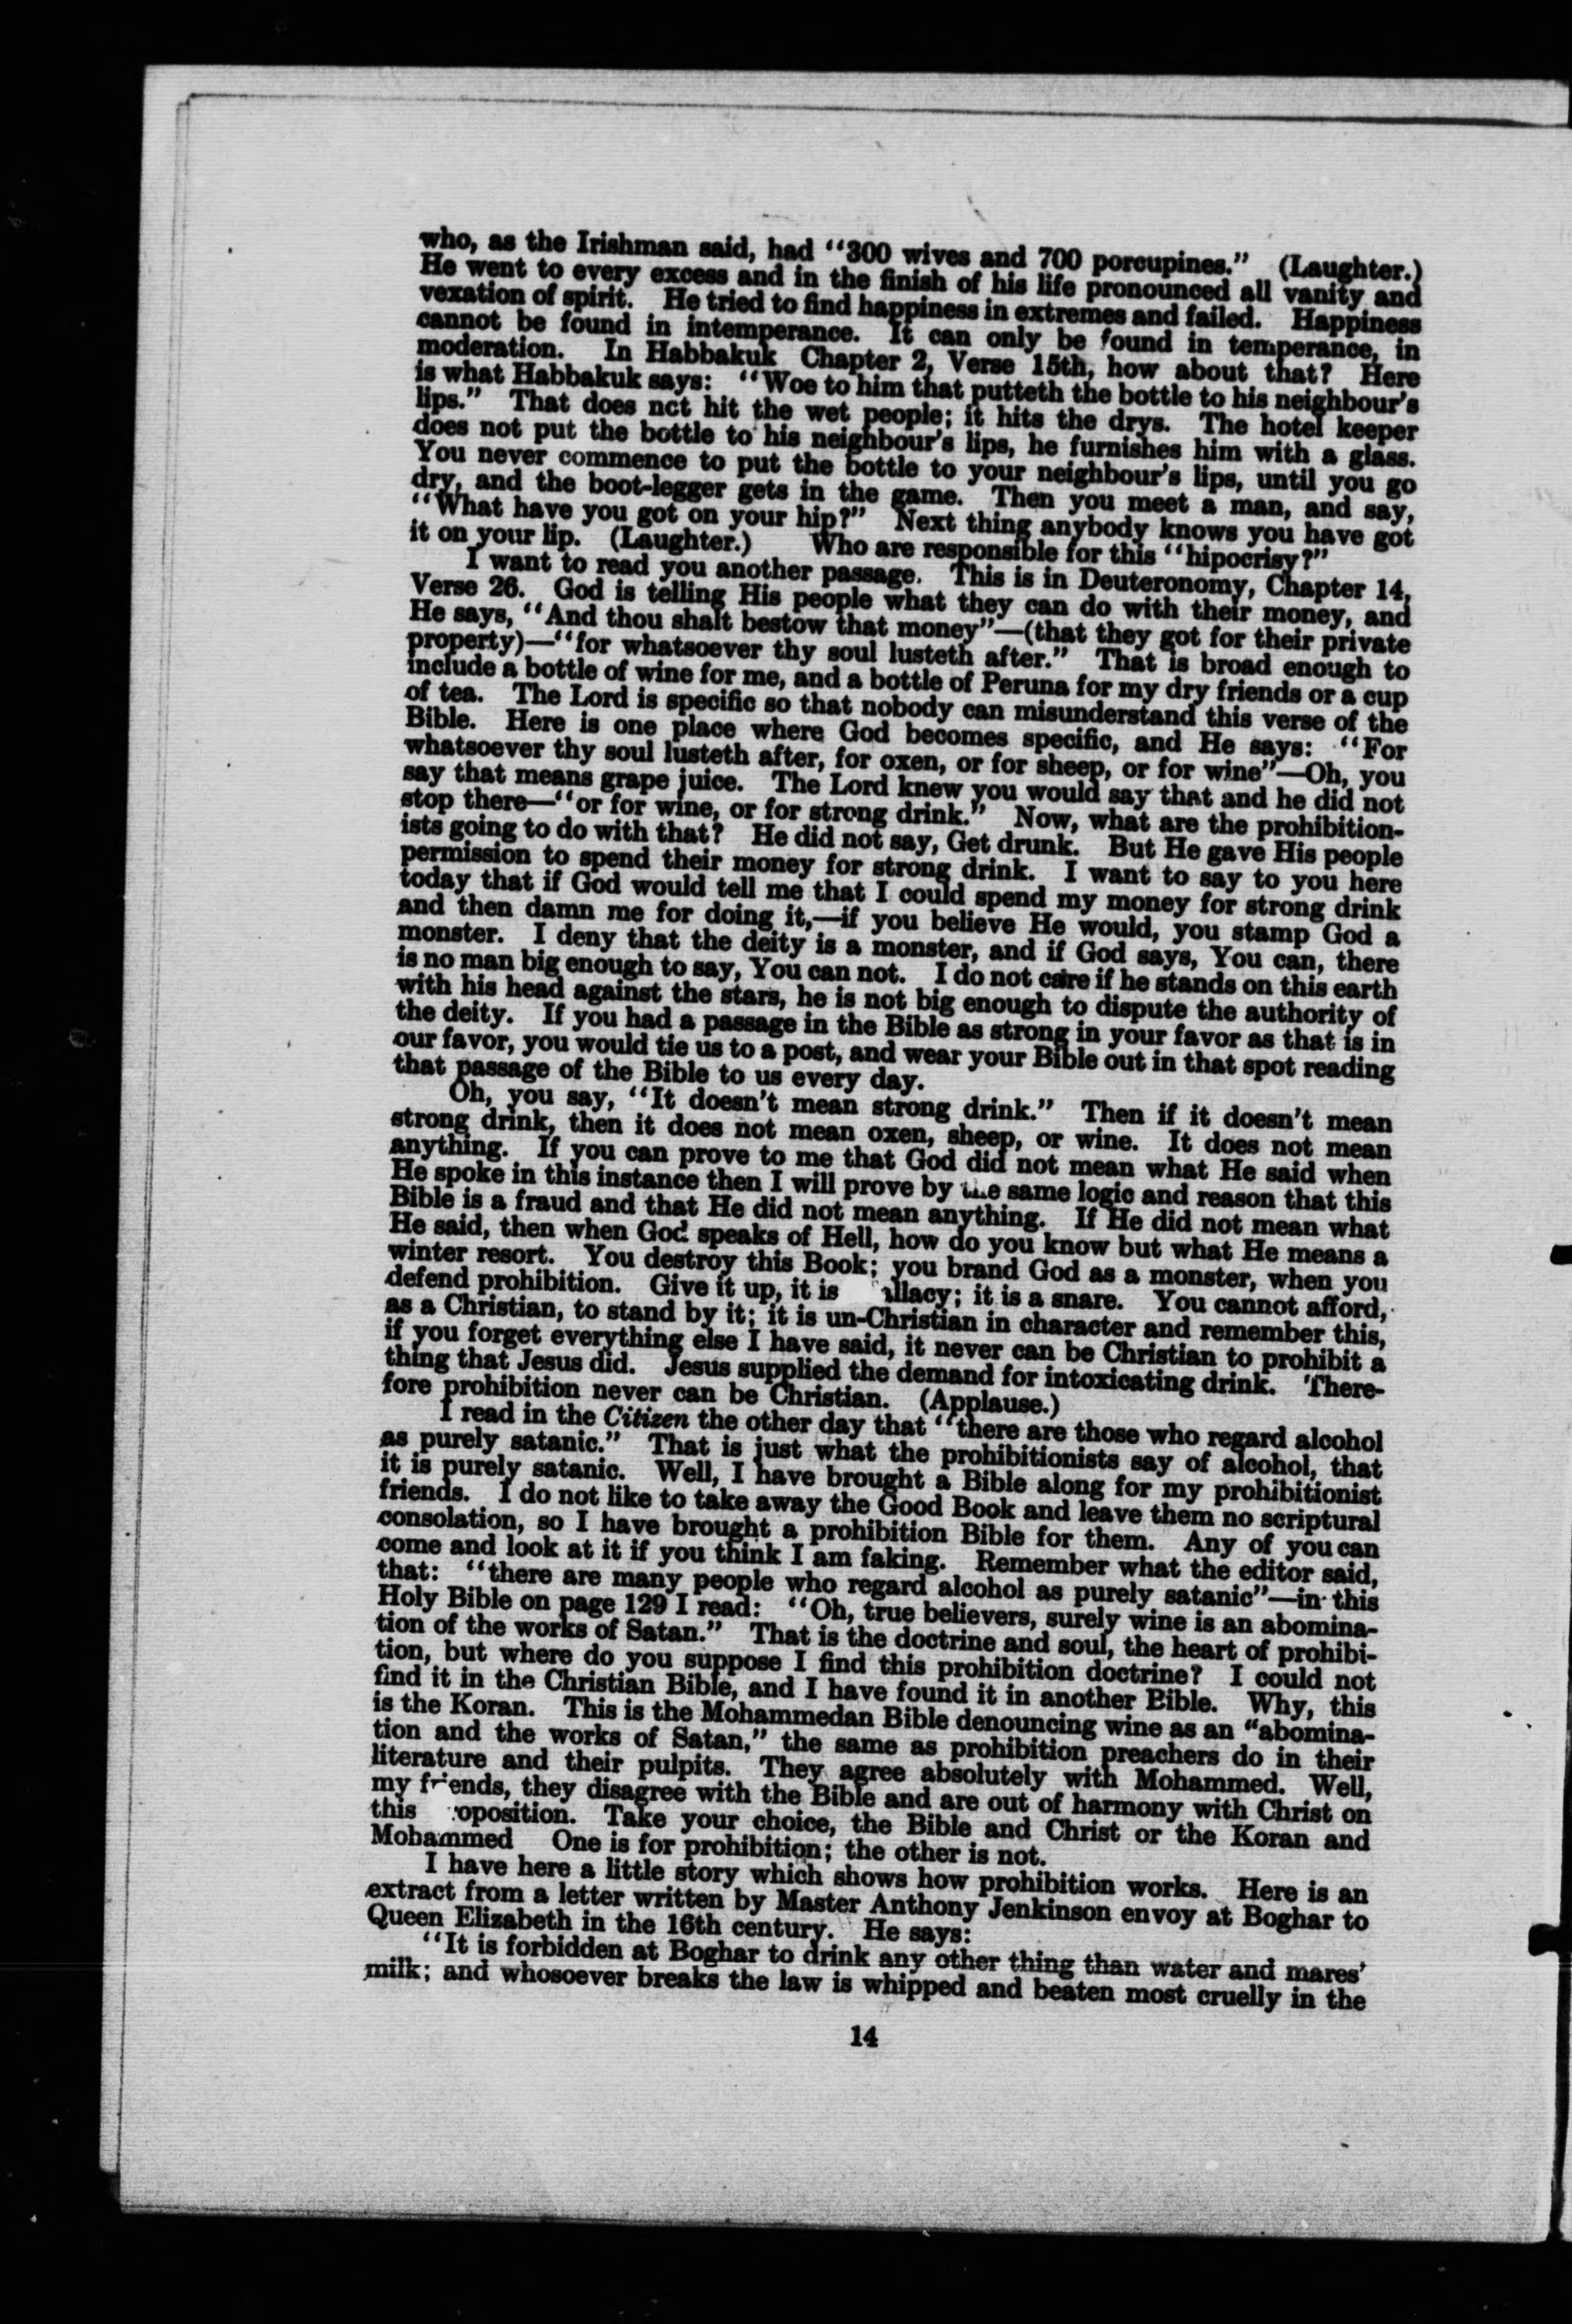 who, as the Irishman said, had "300 wives and 700 porcupines." (Laughter.)
He went to every excess and in the finish of his life pronounced all vanity and
vexation of spirit. He tried to find happiness in extremes and failed. Happiness
cannot be found in intemperance. It can only be found in temperance, in
moderation. In Habbakuk Chapter 2, Verse 15th, how about that? Here
is what Habbakuk says: "Woe to him that putteth the bottle to his neighbour's
lips." That does not hit the wet people; it hits the drys. The hotel keeper
does not put the bottle to his neighbour's lips, he furnishes him with a glass.
You never commence to put the bottle to your neighbour's lips, until you go
dry, and the boot-legger gets in the game. Then you meet a man, and say,
"What have you got on your hip?" Next thing anybody knows you have got
it on your lip. (Laughter.) Who are responsible for this "hipocrisy?"
I want to read you another passage. This is in Deuteronomy, Chapter 14,
Verse 26. God is telling His people what they can do with their money, and
He says, "And thou shalt bestow that money"—(that they got for their private
property)—"for whatsoever thy soul lusteth after." That is broad enough to
include a bottle of wine for me, and a bottle of Peruna for my dry friends or a cup
of tea. The Lord is specific so that nobody can misunderstand this verse of the
Bible. Here is one place where God becomes specific, and He says: "For
whatsoever thy soul lusteth after, for oxen, or for sheep, or for wine"—Oh, you
say that means grape juice. The Lord knew you would say that and he did not
stop there—"or for wine, or for strong drink." Now, what are the prohibition-
ists going to do with that? He did not say, Get drunk. But He gave His people
permission to spend their money for strong drink. I want to say to you here
today that if God would tell me that I could spend my money for strong drink
and then damn me for doing it,—if you believe He would, you stamp God a
monster. I deny that the deity is a monster, and if God says, You can, there
is no man big enough to say, You can not. I do not care if he stands on this earth
with his head against the stars, he is not big enough to dispute the authority of
the deity. If you had a passage in the Bible as strong in your favor as that is in
our favor, you would tie us to a post, and wear your Bible out in that spot reading
that passage of the Bible to us every day.
Oh, you say, "It doesn't mean strong drink." Then if it doesn't mean
strong drink, then it does not mean oxen, sheep, or wine. It does not mean
anything. If you can prove to me that God did not mean what He said when
He spoke in this instance then I will prove by the same logic and reason that this
Bible is a fraud and that He did not mean anything. If He did not mean what
He said, then when God speaks of Hell, how do you know but what He means a
winter resort. You destroy this Book; you brand God as a monster, when you
defend prohibition. Give it up, it is allacy; it is a snare. You cannot afford,
as a Christian, to stand by it; it is un-Christian in character and remember this,
if you forget everything else I have said, it never can be Christian to prohibit a
thing that Jesus did. Jesus supplied the demand for intoxicating drink. There-
fore prohibition never can be Christian. (Applause.)
I read in the Citizen the other day that "there are those who regard alcohol
as purely satanic." That is just what the prohibitionists say of alcohol, that
it is purely satanic. Well, I have brought a Bible along for my prohibitionist
friends. I do not like to take away the Good Book and leave them no scriptural
consolation, so I have brought a prohibition Bible for them. Any of you can
come and look at it if you think I am faking. Remember what the editor said,
that: "there are many people who regard alcohol as purely satanic"—in this
Holy Bible on page 129 I read: "Oh, true believers, surely wine is an abomina-
tion of the works of Satan." That is the doctrine and soul, the heart of prohibi-
tion, but where do you suppose I find this prohibition doctrine? I could not
find it in the Christian Bible, and I have found it in another Bible. Why, this
is the Koran. This is the Mohammedan Bible denouncing wine as an "abomina-
tion and the works of Satan," the same as prohibition preachers do in their
literature and their pulpits. They agree absolutely with Mohammed. Well,
my friends, they disagree with the Bible and are out of harmony with Christ on
this oposition. Take your choice, the Bible and Christ or the Koran and
Mohammed One is for prohibition; the other is not.
I have here a little story which shows how prohibition works. Here is an
extract from a letter written by Master Anthony Jenkinson envoy at Boghar to
Queen Elizabeth in the 16th century. He says:
"It is forbidden at Boghar to drink any other thing than water and mares'
milk; and whosoever breaks the law is whipped and beaten most cruelly in the
14